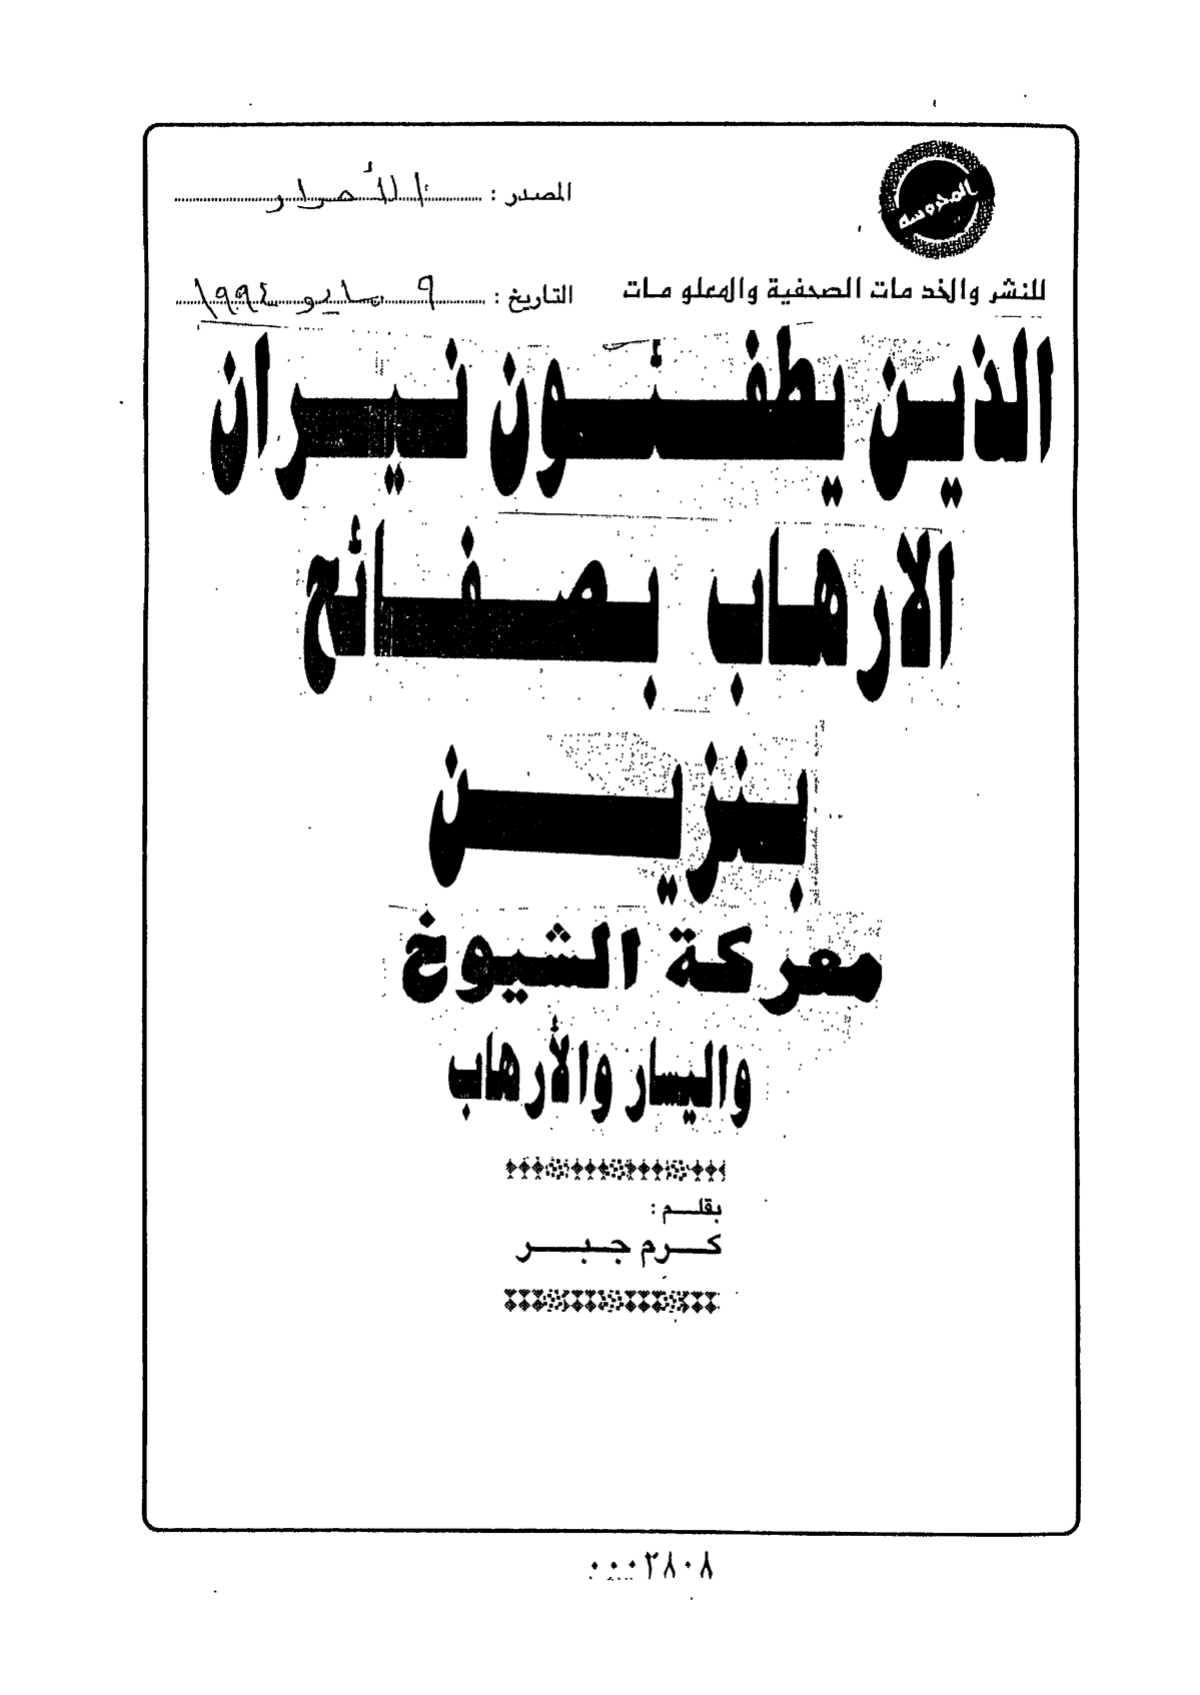 المحروسة
المصدر : الأحرار
للنشر والخدمات الصحفية والمعلومات
التاريخ : ٩ مايو ١٩٩٤
الذين يطفئون نيران
الارهاب بصفائح
بنزين
معركة الشيوخ
واليسار والأرهاب
بقلم :
كرم جبر
٠٠٠٢٨٠٨